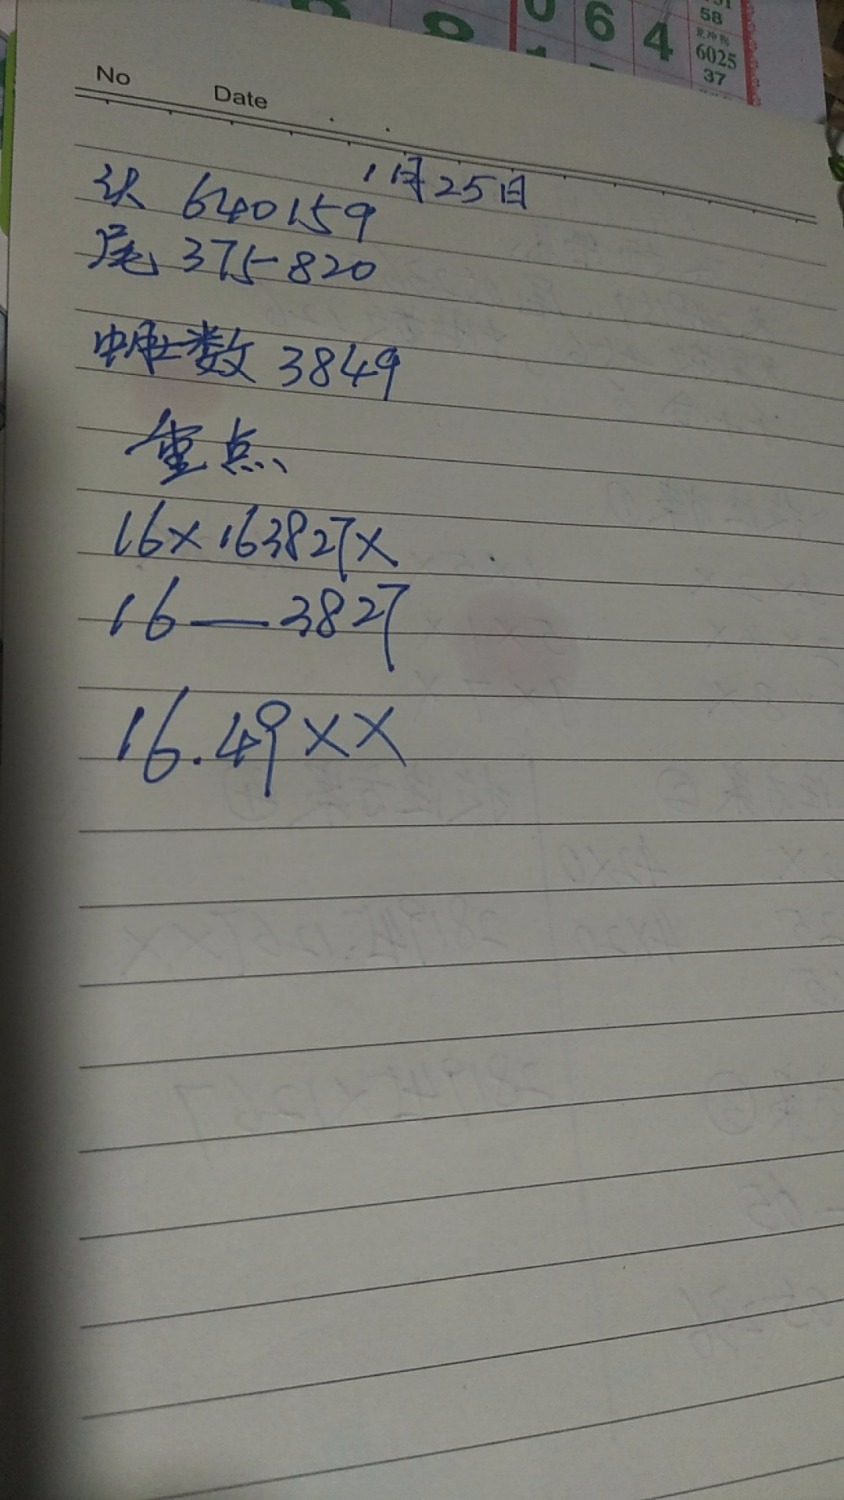 064
58
6025
37
No Date
1月25日
头 640159
尾 375820
中肚数 3849
重点、
16×163827×
16—3827
16.49××